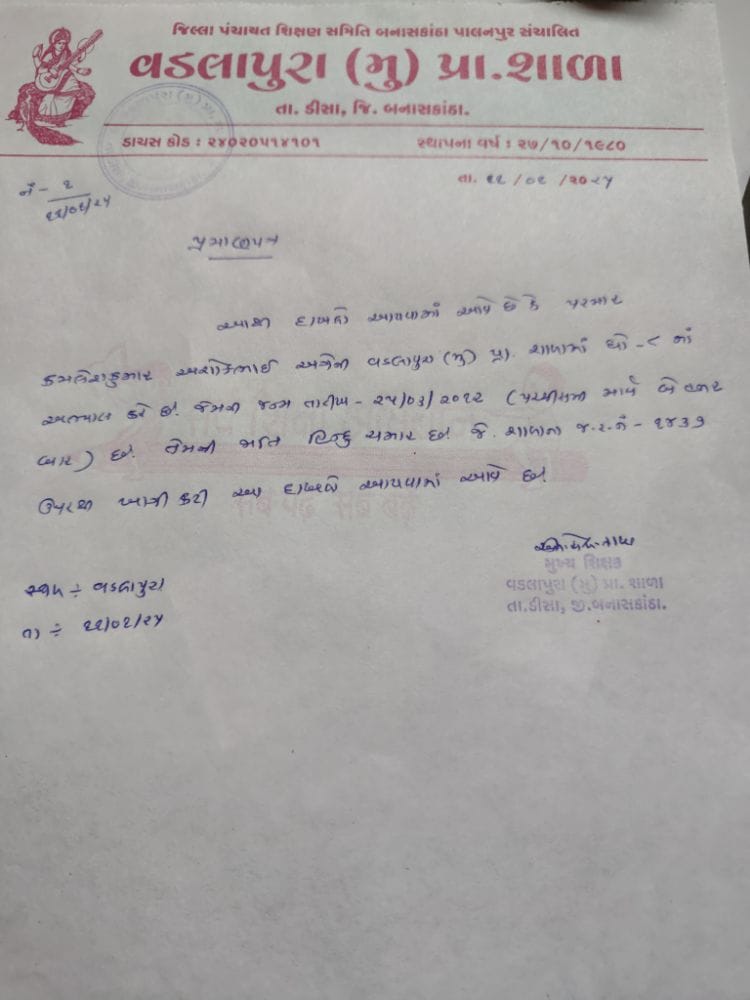 જિલ્લા પંચાયત શિક્ષણ સમિતિ બનાસકાંઠા પાલનપુર સંચાલિત
વડલાપુરા (મુ) પ્રા.શાળા
તા. ડીસા, જિ. બનાસકાંઠા.
ડાયસ કોડ : ૨૪૦૨૦૫૧૪૧૦૧ સ્થાપના વર્ષ : ૨૭/૧૦/૧૯૮૦
તા. ૧૨ /૦૨ /૨૦૨૫
નં - ૨
૧૨/૦૨/૨૫
પ્રમાણપત્ર
આથી દાખલો આપવામાં આવે છે કે પરમાર
કમલેશકુમાર અશોકભાઈ અત્રેની વડલાપુરા (મુ) પ્રા. શાળામાં ધો - ૮ માં
અભ્યાસ કરે છે. જેમની જન્મ તારીખ - ૨૫/૦૩/૨૦૧૨ (પચ્ચીસમી માર્ચ બે હજાર
બાર) છે. તેમની જાતિ હિન્દુ ચમાર છે. જે શાળાના જ.ર.નં -
ઉપરથી ખાત્રી કરી આ દાખલો આપવામાં આવે છે.
મુખ્ય શિક્ષક
વડલાપુરા (મુ) પ્રા. શાળા
તા.ડીસા, જી.બનાસકાંઠા.
સ્થળ ÷ વડલાપુરા
તા ÷ ૧૨/૦૨/૨૫